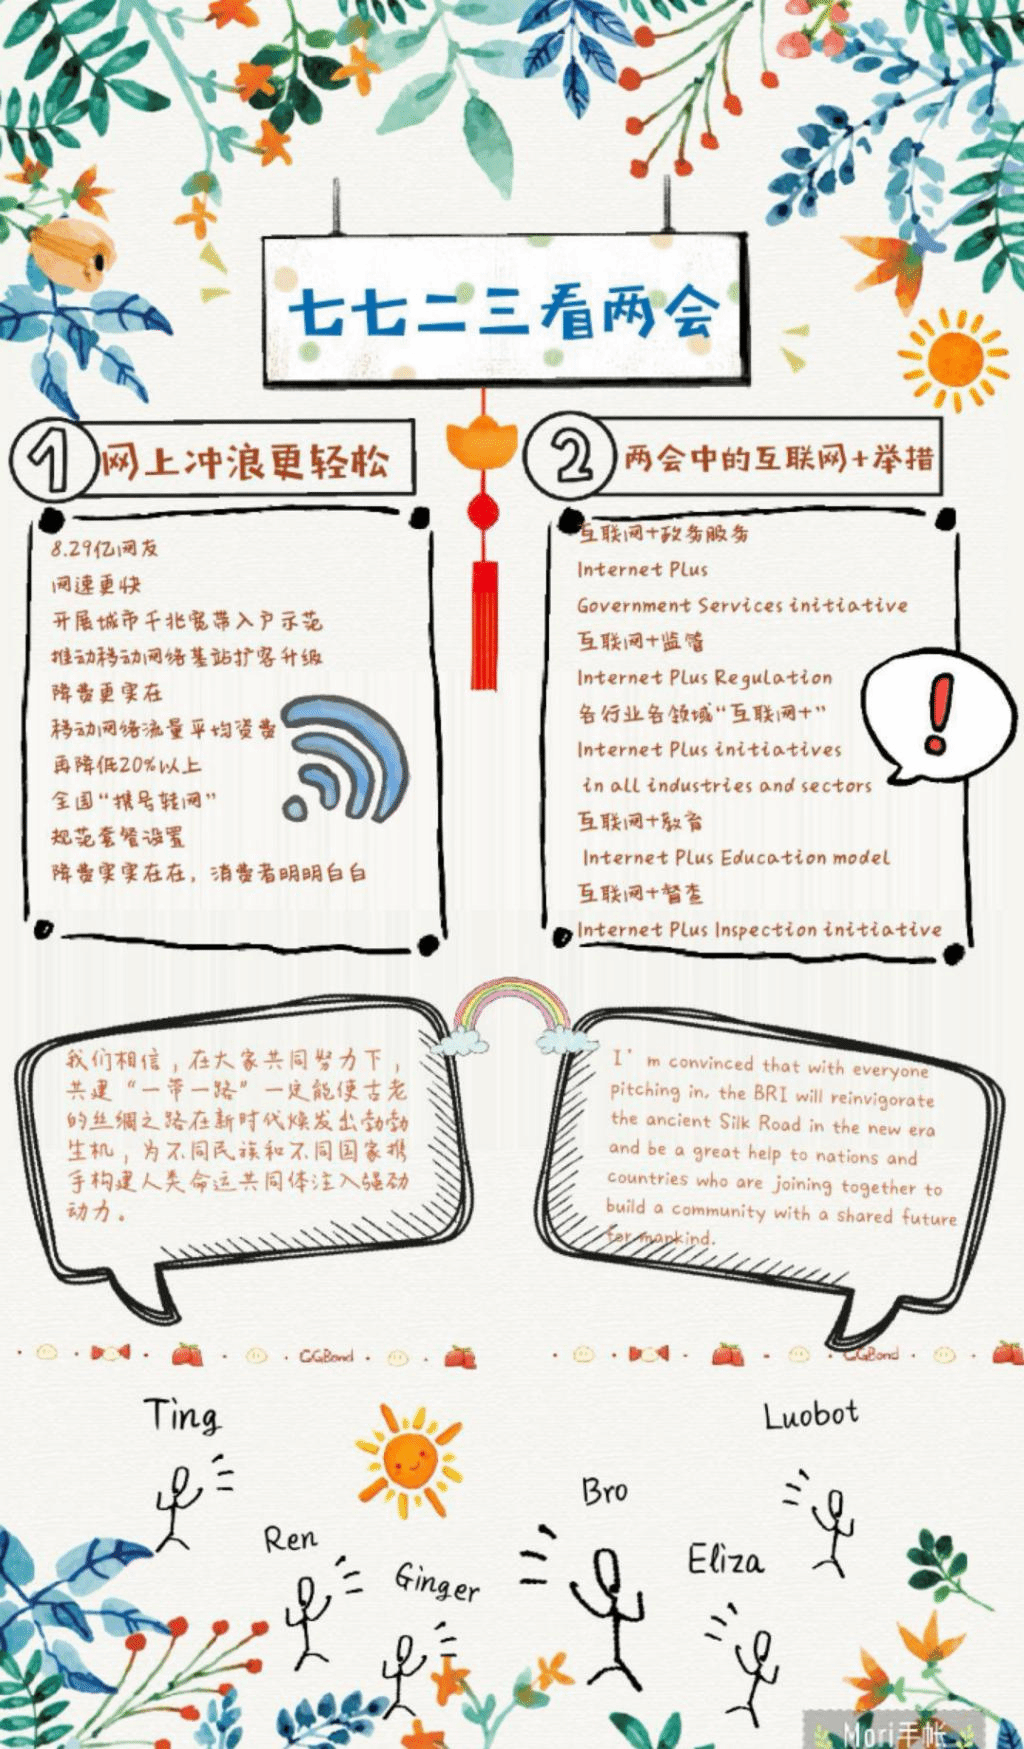 七七二三看两会
1 网上冲浪更轻松
8.29亿网友
网速更快
开展城市千兆宽带入户示范
推动移动网络基站扩容升级
降费更实在
移动网络流量平均资费
再降低20%以上
全国“携号转网”
规范套餐设置
降费实实在在，消费者明明白白
2 两会中的互联网+举措
互联网+政务服务
Internet Plus
Government Services initiative
互联网+监管
Internet Plus Regulation
各行业各领域“互联网+”
Internet Plus initiatives
in all industries and sectors
互联网+教育
Internet Plus Education model
互联网+督查
Internet Plus Inspection initiative
!
我们相信，在大家共同努力下，
共建“一带一路”一定能使古老
的丝绸之路在新时代焕发出勃勃
生机，为不同民族和不同国家携
手构建人类命运共同体注入强劲
动力。
I'm convinced that with everyone
pitching in, the BRI will reinvigorate
the ancient Silk Road in the new era
and be a great help to nations and
countries who are joining together to
build a community with a shared future
for mankind.
GGBond
GGBond
Ting
Luobot
Bro
Ren
Eliza
Ginger
Mori手帐